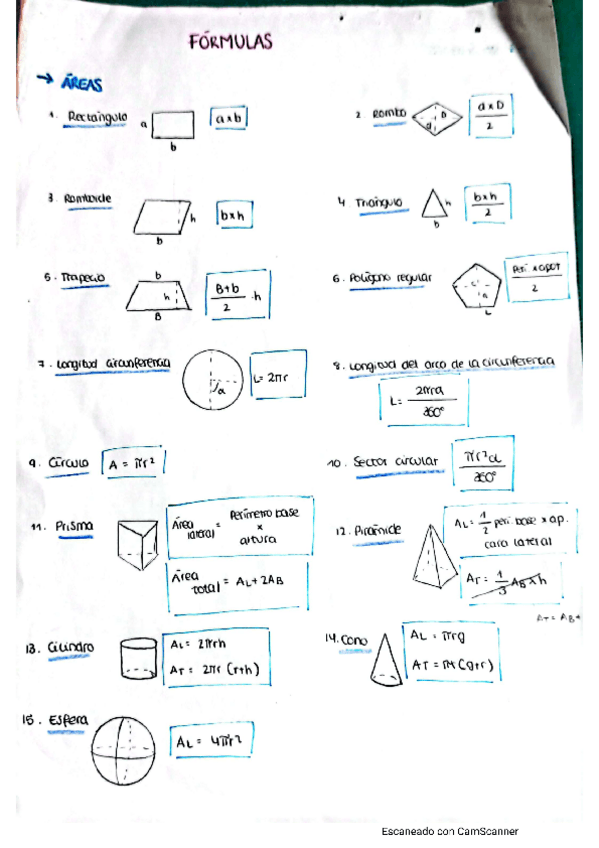 FÓRMULAS
→ ÁREAS
1. Rectángulo a b a x b
2 Rombo D d d x D / 2
3. Romboide h b b x h
4 Triángulo h b b x h / 2
5. Trapecio b h B B+b / 2 · h
6. Polígono regular c a L Peri. x apot / 2
7. Longitud circunferencia L = 2πr
8. Longitud del arco de la circunferencia
L = 2πrα / 360°
9. Círculo A = πr²
10. Sector circular πr²α / 360°
11. Prisma Área lateral = Perímetro base x altura
Área total = AL + 2AB
12. Pirámide AL = 1/2 peri. base x ap. cara lateral
AT = 1/3 AB x h
AT = AB+
13. Cilindro AL = 2πrh
AT = 2πr (r+h)
14. Cono AL = πrg
AT = πr (g+r)
15. Esfera AL = 4πr²
Escaneado con CamScanner